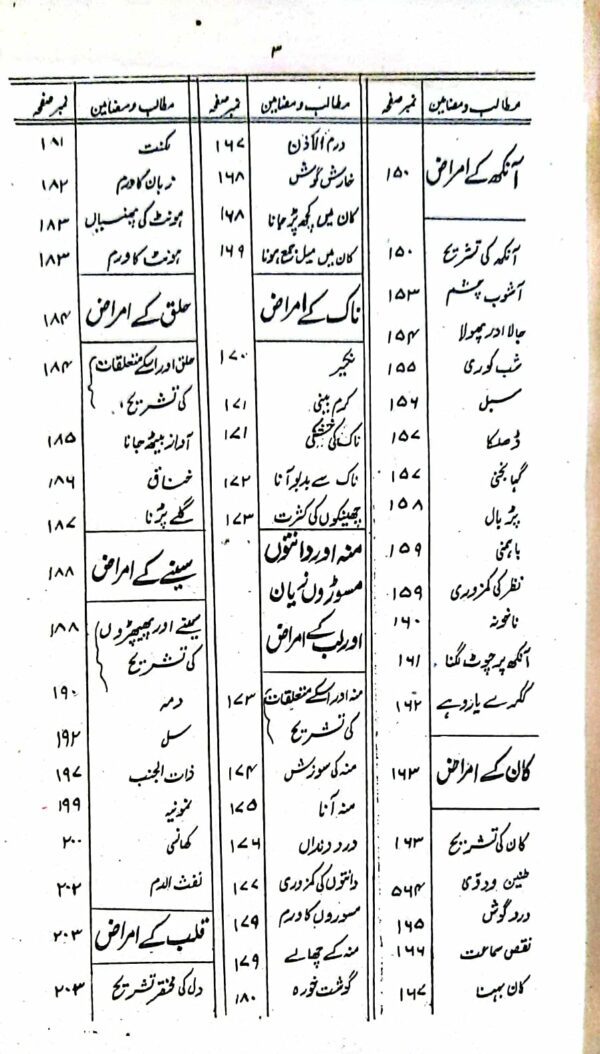 ۳
مطالب و مضامین نمبر صفحہ
آنکھ کے امراض ۱۵۰
آنکھ کی تشریح ۱۵۰
آشوب چشم ۱۵۳
جالا اور پھولا ۱۵۴
شب کوری ۱۵۵
سبل ۱۵۶
ڈھلکا ۱۵۷
گہانجنی ۱۵۷
پڑبال ۱۵۸
باہمنی ۱۵۹
نظر کی کمزوری ۱۵۹
ناخونہ ۱۶۰
آنکھ پر چوٹ لگنا ۱۶۱
ککرے یا روہے ۱۶۲
کان کے امراض ۱۶۳
کان کی تشریح ۱۶۳
طنین و دوّی ۵۶۴
درد گوش ۱۶۵
نقص سماعت ۱۶۶
کان بہنا ۱۶۷
مطالب و مضامین نمبر صفحہ
درم الاذن ۱۶۷
خارش گوش ۱۶۸
کان میں کچھ پڑ جانا ۱۶۸
کان میں میل جمع ہونا ۱۶۹
ناک کے امراض
نکیر ۱۷۰
کرم بینی ۱۷۱
ناک کی خشکی ۱۷۱
ناک سے بدبو آنا ۱۷۲
چھینکوں کی کثرت ۱۷۳
منہ اور دانتوں
مسوڑوں زبان
اور لب کے امراض
منہ اور اسکے متعلقات ۱۷۳
کی تشریح
منہ کی سوزش ۱۷۴
منہ آنا ۱۷۵
درد دنداں ۱۷۶
دانتوں کی کمزوری ۱۷۷
مسوروں کا ورم ۱۷۹
منہ کے چھالے ۱۷۹
گوشت خورہ ۱۸۰
مطالب و مضامین نمبر صفحہ
لکنت ۱۸۱
زبان کا ورم ۱۸۲
ہونٹ کی پھنسیاں ۱۸۳
ہونٹ کا ورم ۱۸۳
حلق کے امراض ۱۸۴
حلق اور اسکے متعلقات ۱۸۴
کی تشریح
آواز بیٹھ جانا ۱۸۵
خناق ۱۸۶
گلے پڑنا ۱۸۷
سینے کے امراض ۱۸۸
سینے اور پھیپھڑوں ۱۸۸
کی تشریح
دمہ ۱۹۰
سل ۱۹۲
ذات الجنب ۱۹۷
نمونیہ ۱۹۹
کھانسی ۲۰۰
نفث الدم ۲۰۲
قلب کے امراض ۲۰۳
دل کی مختصر تشریح ۲۰۳